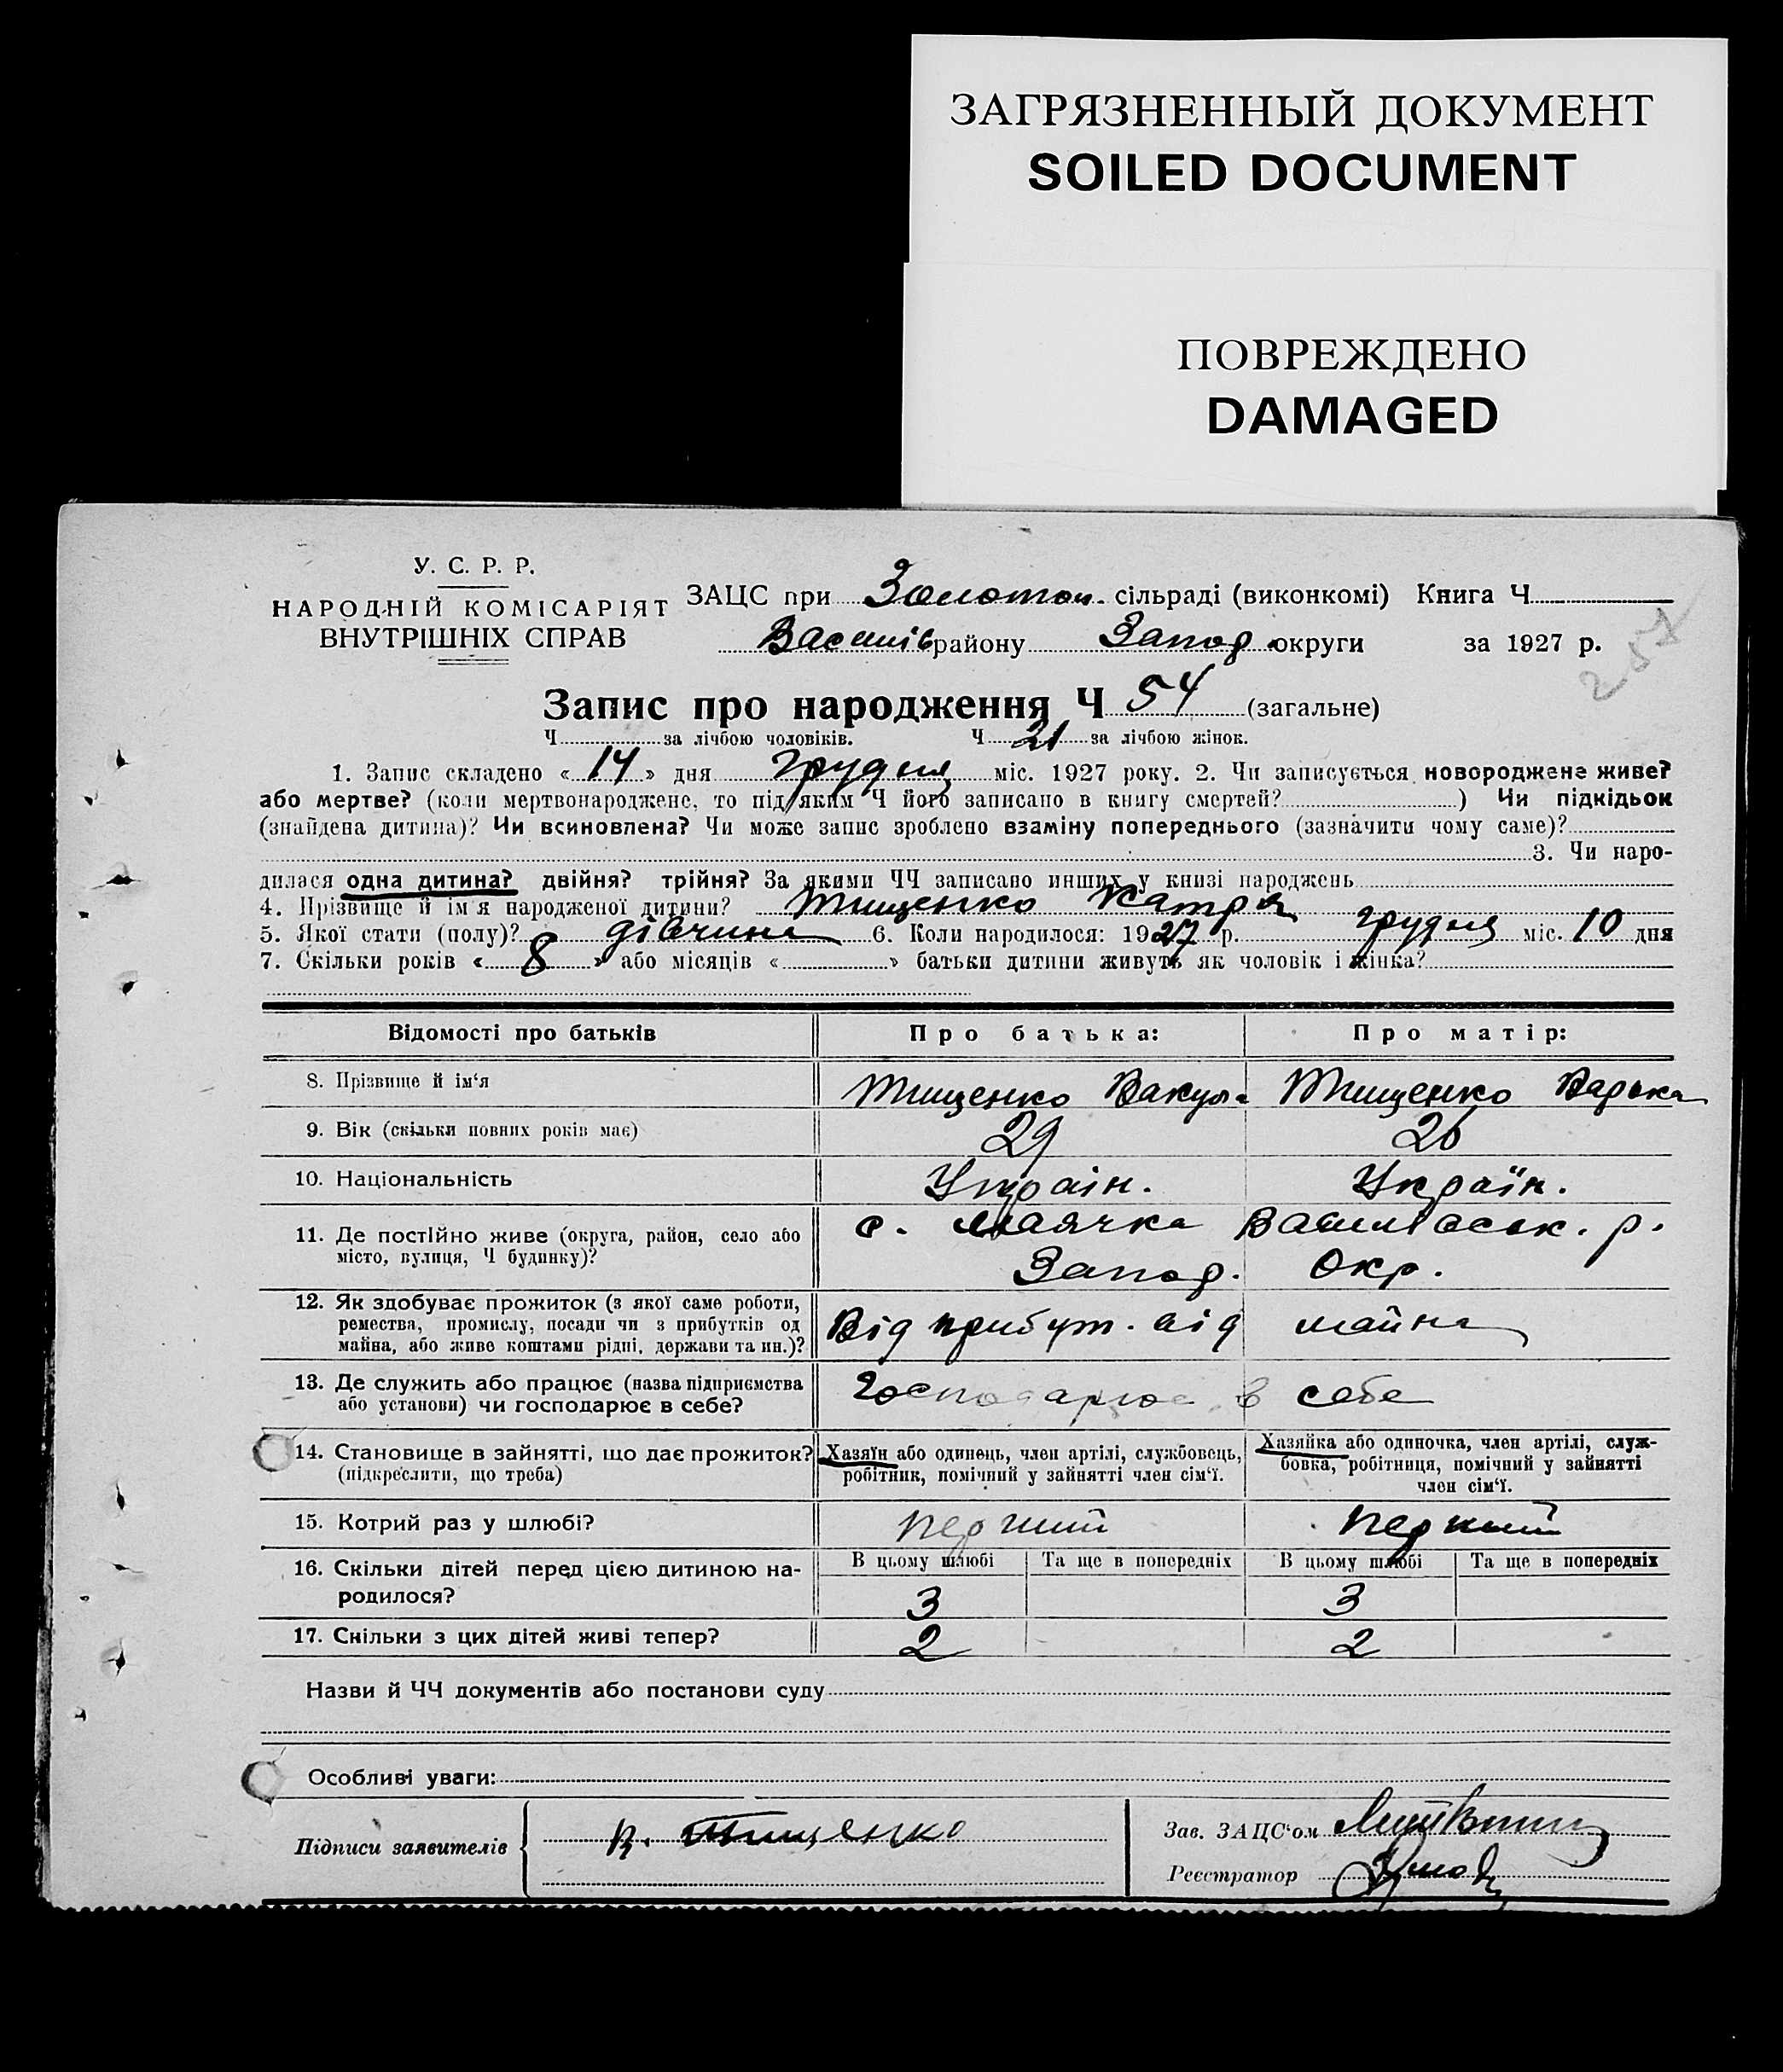 ЗАГРЯЗНЕННЫЙ ДОКУМЕНТ
SOILED DOCUMENT
ПОВРЕЖДЕНО
DAMAGED
У. С. Р. Р.
НАРОДНІЙ КОМІСАРІЯТ
ВНУТРІШНІХ СПРАВ
ЗАЦС при Золотон. сільраді (виконкомі) Книга Ч
Василів району Запор. округи за 1927 р.
257
Запис про народження Ч 54 (загальне)
Ч за лічбою чоловіків. Ч 21 за лічбою жінок.
1. Запис складено «14» дня грудня міс. 1927 року. 2. Чи записується новороджене живе?
або мертве? (коли мертвонароджене, то під яким Ч його записано в книгу смертей? ) Чи підкідьок
(знайдена дитина)? Чи всиновлена? Чи може запис зроблено взаміну попереднього (зазначити чому саме)?
3. Чи наро-
дилася одна дитина? двійня? трійня? За якими ЧЧ записано инших у книзі народжень
4. Прізвище й ім'я народженої дитини? Тищенко Катря
5. Якої стати (полу)? дівчина 6. Коли народилося: 1927 р. грудня міс. 10 дня
7. Скільки років «8» або місяців « » батьки дитини живуть як чоловік і жінка?
Відомості про батьків Про батька: Про матір:
8. Прізвище й ім'я Тищенко Вакула Тищенко Варька
9. Вік (скільки повних років має) 29 26
10. Національність Україн. Україн.
11. Де постійно живе (округа, район, село або
місто, вулиця, Ч будинку)?
с. Маячка Василівськ. р.
Запор. Окр.
12. Як здобуває прожиток (з якої саме роботи,
ремества, промислу, посади чи з прибутків од
майна, або живе коштами рідні, держави та ин.)?
Від прибут. від майна
13. Де служить або працює (назва підприємства
або установи) чи господарює в себе?
Господарює в себе
14. Становище в зайнятті, що дає прожиток?
(підкреслити, що треба)
Хазяїн або одинець, член артілі, службовець,
робітник, помічний у зайнятті член сім'ї.
Хазяйка або одиночка, член артілі, служ-
бовка, робітниця, помічний у зайнятті
член сім'ї.
15. Котрий раз у шлюбі? перший перший
16. Скільки дітей перед цією дитиною на-
родилося?
В цьому шлюбі Та ще в попередніх В цьому шлюбі Та ще в попередніх
3 3
17. Скільки з цих дітей живі тепер? 2 2
Назви й ЧЧ документів або постанови суду
Особливі уваги:
Підписи заявителів В. Тищенко
Зав. ЗАЦС'ом
Реєстратор